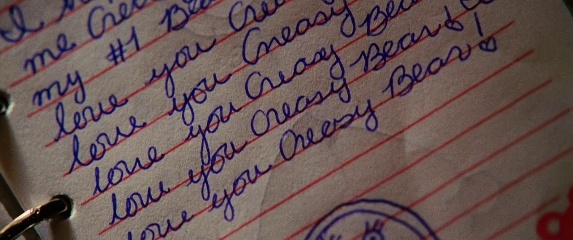 me Crea
my #1 Bea
love you Crea
love you Creasy Bea
love you Creasy Bear!
love you Creasy Bear!
love you Creasy Bear!